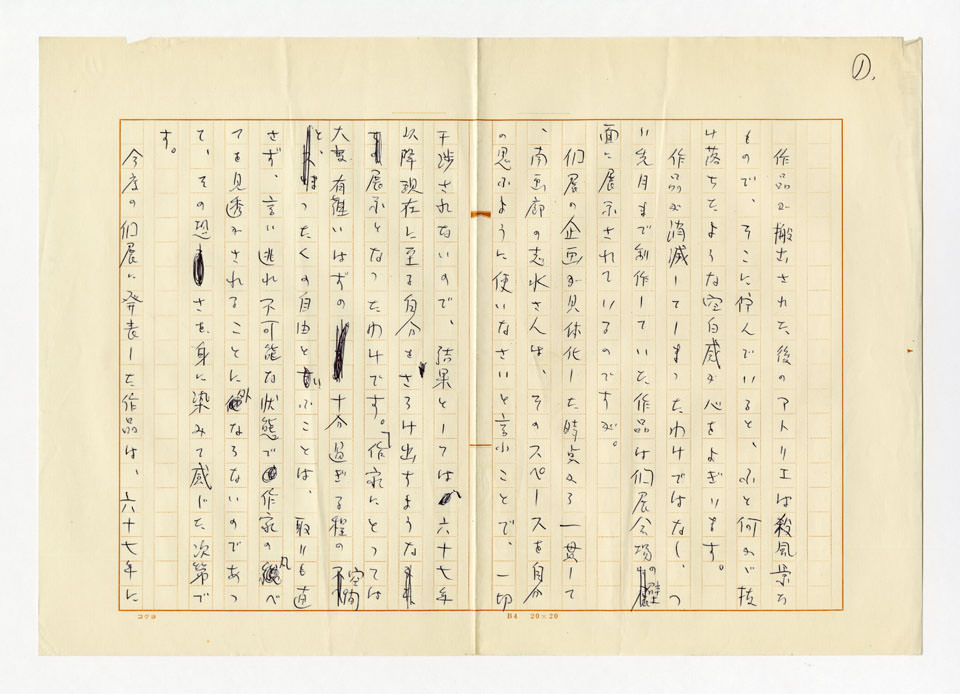 ①.
作品が搬出された後のアトリエは殺風景な
もので、そこに佇んでいると、ふと何かが抜
け落ちたような空白感が心をよぎります。
作品が消滅してしまったわけではなし、つ
い先月まで制作していた作品は個展会場の壁
面に展示されているのですが。
個展の企画が具体化した時点から一貫して
、南画廊の志水さんは、そのスペースを自分
の思ふように使いなさいと言ふことで、一切
干渉されないので、結果としては六十七年
以降現在に至る自分をさらけ出すような
展示となったわけです。「作家にとっては
大変有難いはずの十分過ぎる程の空間
と、まったくの自由と いふことは、取りも直
さず、言い逃れ不可能な状態で作家の丸べ
てを見透かされることに外ならないのであっ
て、その恐さを身に染みて感じた次第で
す。
今度の個展に発表した作品は、六十七年に
コクヨ
B4 20×20